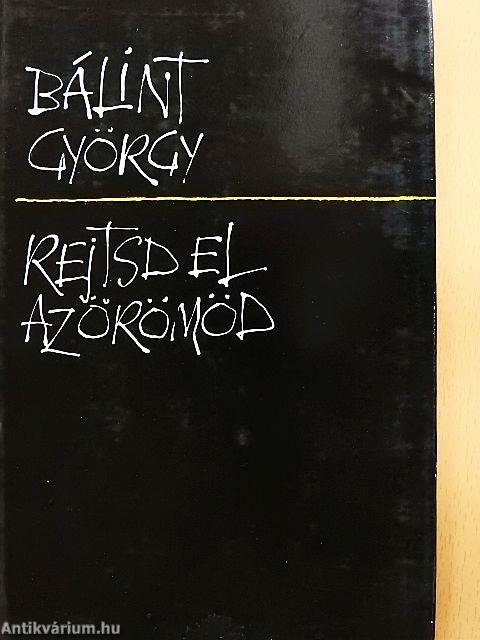 BÁLINT
GYÖRGY
REJTSD EL
AZ ÖRÖMÖD
Antikvárium.hu